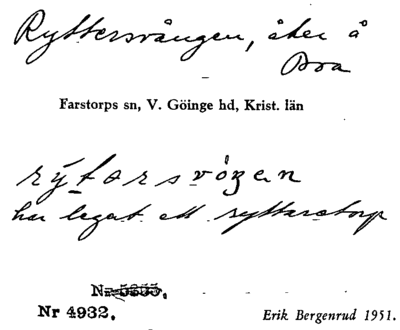 Ryttersvången, åker å
Bra
Farstorps sn, V. Göinge hd, Krist. län
rýtarsvóŋen
har legat ett ryttaretorp
Nr 4932.
Erik Bergenrud 1951.